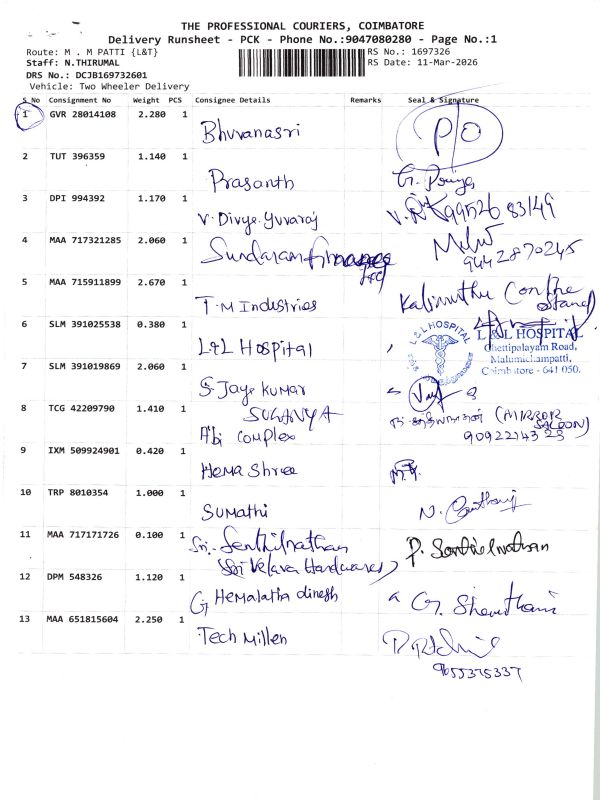 THE PROFESSIONAL COURIERS, COIMBATORE
Delivery Runsheet - PCK - Phone No.:9047080280 - Page No.:1
Route: M . M PATTI {L&T}
RS No.: 1697326
Staff: N.THIRUMAL
RS Date: 11-Mar-2026
DRS No.: DCJB169732601
Vehicle: Two Wheeler Delivery
S No Consignment No Weight PCS Consignee Details Remarks Seal & Signature
1 GVR 28014108 2.280 1 Bhuvanasri P/O
2 TUT 396359 1.140 1 Prasanth G. Priya
3 DPI 994392 1.170 1 V. Divya Yuvaraj 99526 83149
4 MAA 717321285 2.060 1 Sundaram Finance 9442870245
5 MAA 715911899 2.670 1 T.M Industries Kalimuthu
6 SLM 391025538 0.380 1 L&L Hospital
L & L HOSPITAL
L & L HOSPITAL
Chettipalayam Road,
Malumichampatti,
Coimbatore - 641 050.
7 SLM 391019869 2.060 1 S. Jaya Kumar
8 TCG 42209790 1.410 1 SUGANYA (MIRROR SALOON)
Abi Complex
9 IXM 509924901 0.420 1 Hema Shree
10 TRP 8010354 1.000 1 Sumathi
11 MAA 717171726 0.100 1 Sri. Senthilnathan P. Senthilnathan
Sri Velava Hardwares
12 DPM 548326 1.120 1 G Hemalatha dinesh
13 MAA 651815604 2.250 1 Tech Millen
9655375337